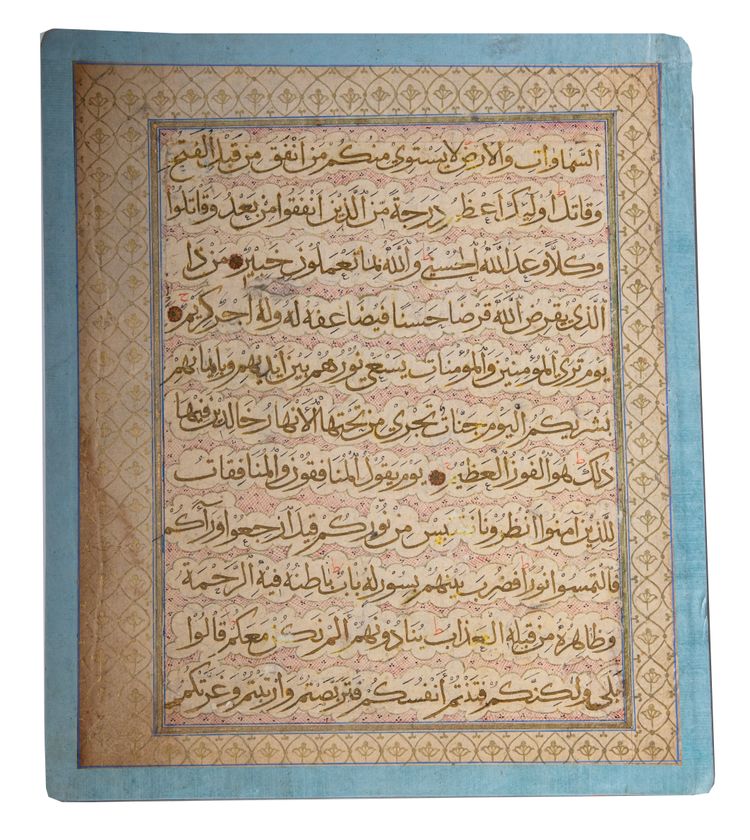 السماوات والأرض لا يستوى منكم من أنفق من قبل الفتح
وقاتل أولئك أعظم درجة من الذين أنفقوا من بعد وقاتلوا
وكلا وعد الله الحسنى والله بما تعملون خبير من ذا
الذى يقرض الله قرضا حسنا فيضاعفه له وله أجر كريم
يوم ترى المؤمنين والمؤمنات يسعى نورهم بين أيديهم وبايمانهم
بشريكم اليوم جنات تجرى من تحتها الأنهار خالدين فيها
ذلك هو الفوز العظيم يوم يقول المنافقون والمنافقات
للذين آمنوا انظرونا نقتبس من نوركم قيل ارجعوا ورآءكم
فالتمسوا نورا فضرب بينهم بسور له باب باطنه فيه الرحمة
وظاهره من قبله العذاب ينادونهم ألم نكن معكم قالوا
بلى ولكنكم فتنتم أنفسكم وتربصتم وارتبتم وغرتكم